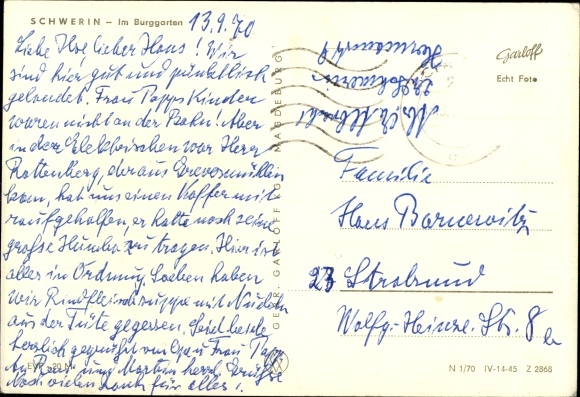 SCHWERIN – Im Burggarten
13.9.70
Liebe Ilse lieber Hans! Wir
sind hier gut und pünktlich
gelandet. Frau Papps Kinder
waren nicht an der Bahn! Aber
in der Elektrischen war Herr
Rattenberg, der aus
kam, hat uns einen Koffer mit
raufgeholfen, er hatte noch seine
große zu tragen. Hier ist
alles in Ordnung. Soeben haben
wir Rindfleischsuppe mit Nudeln
aus der Tüte gegessen. Seid beide
herzlich gegrüßt von Opa u. Frau Papp
An und Martin herzl. Grüße
Noch vielen Dank für alles!
EVP -,20 M
GEBR. GARLOFF KG MAGDEBURG
Garloff
Echt Foto
Abs. Albrecht
27 Schwerin
Familie
Hans Barnewitz
23 Stralsund
Wolfg.-Heinze-Str. 8a
N 1/70 IV-14-45 Z 2868